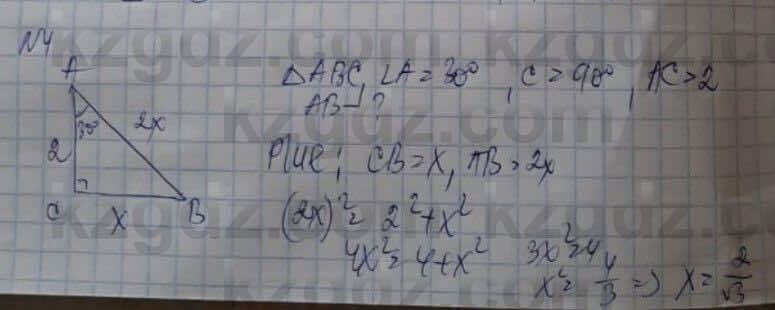 N4
A
30°
2x
2
C
x
B
△ABC, ∠A = 30°, C = 90°, AC = 2
AB - ?
CB = x, AB = 2x
(2x)² = 2² + x²
4x² = 4 + x²
3x² = 4
x² = 4/3 => x = 2/√3
kzgdz.com